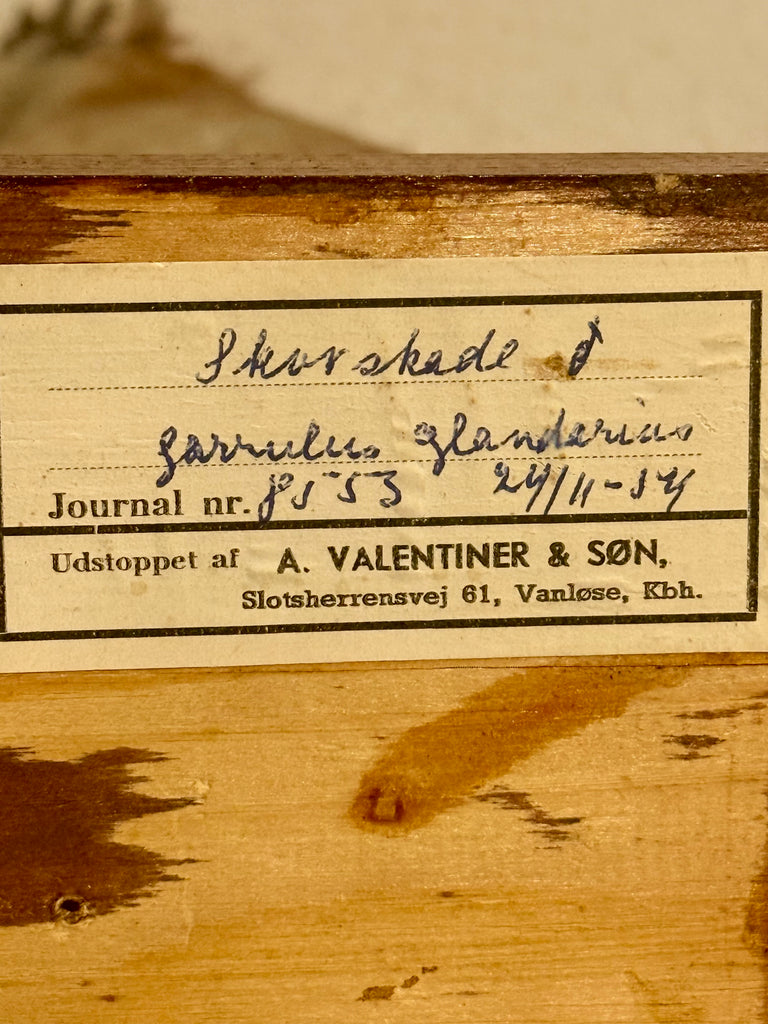 Skovskade ♂
Garrulus glandarius
Journal nr. 8553 24/11-54
Udstoppet af A. VALENTINER & SØN,
Slotsherrensvej 61, Vanløse, Kbh.